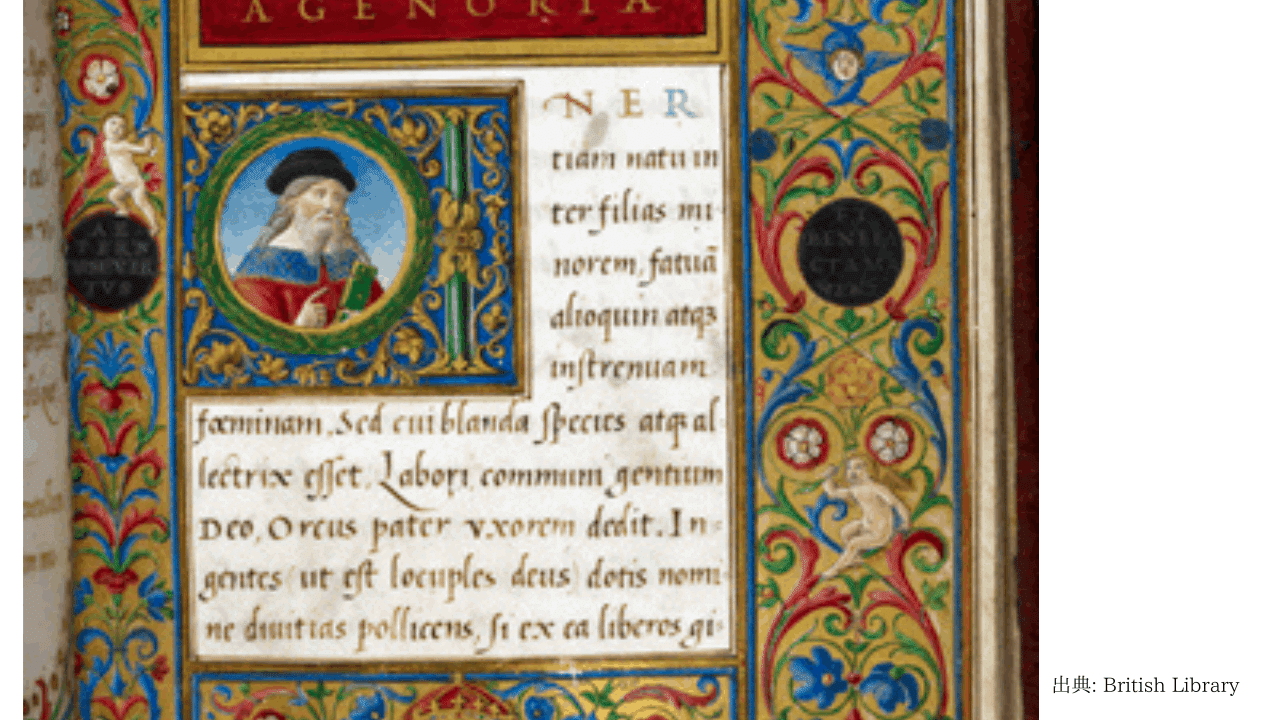 AGENORIA
I NER
tiam natu in
ter filias mi
norem, fatuã
alioquin atqꝫ
inſtrenuam
fœminam. Sed cui blanda ſpecies atqꝫ al
lectrix eſſet. Labori communi gentium
Deo, Orcus pater vxorem dedit. In-
gentes (ut eſt locuples deus) dotis nomi-
ne diuitias pollicens, ſi ex ea liberos gi-
出典: British Library